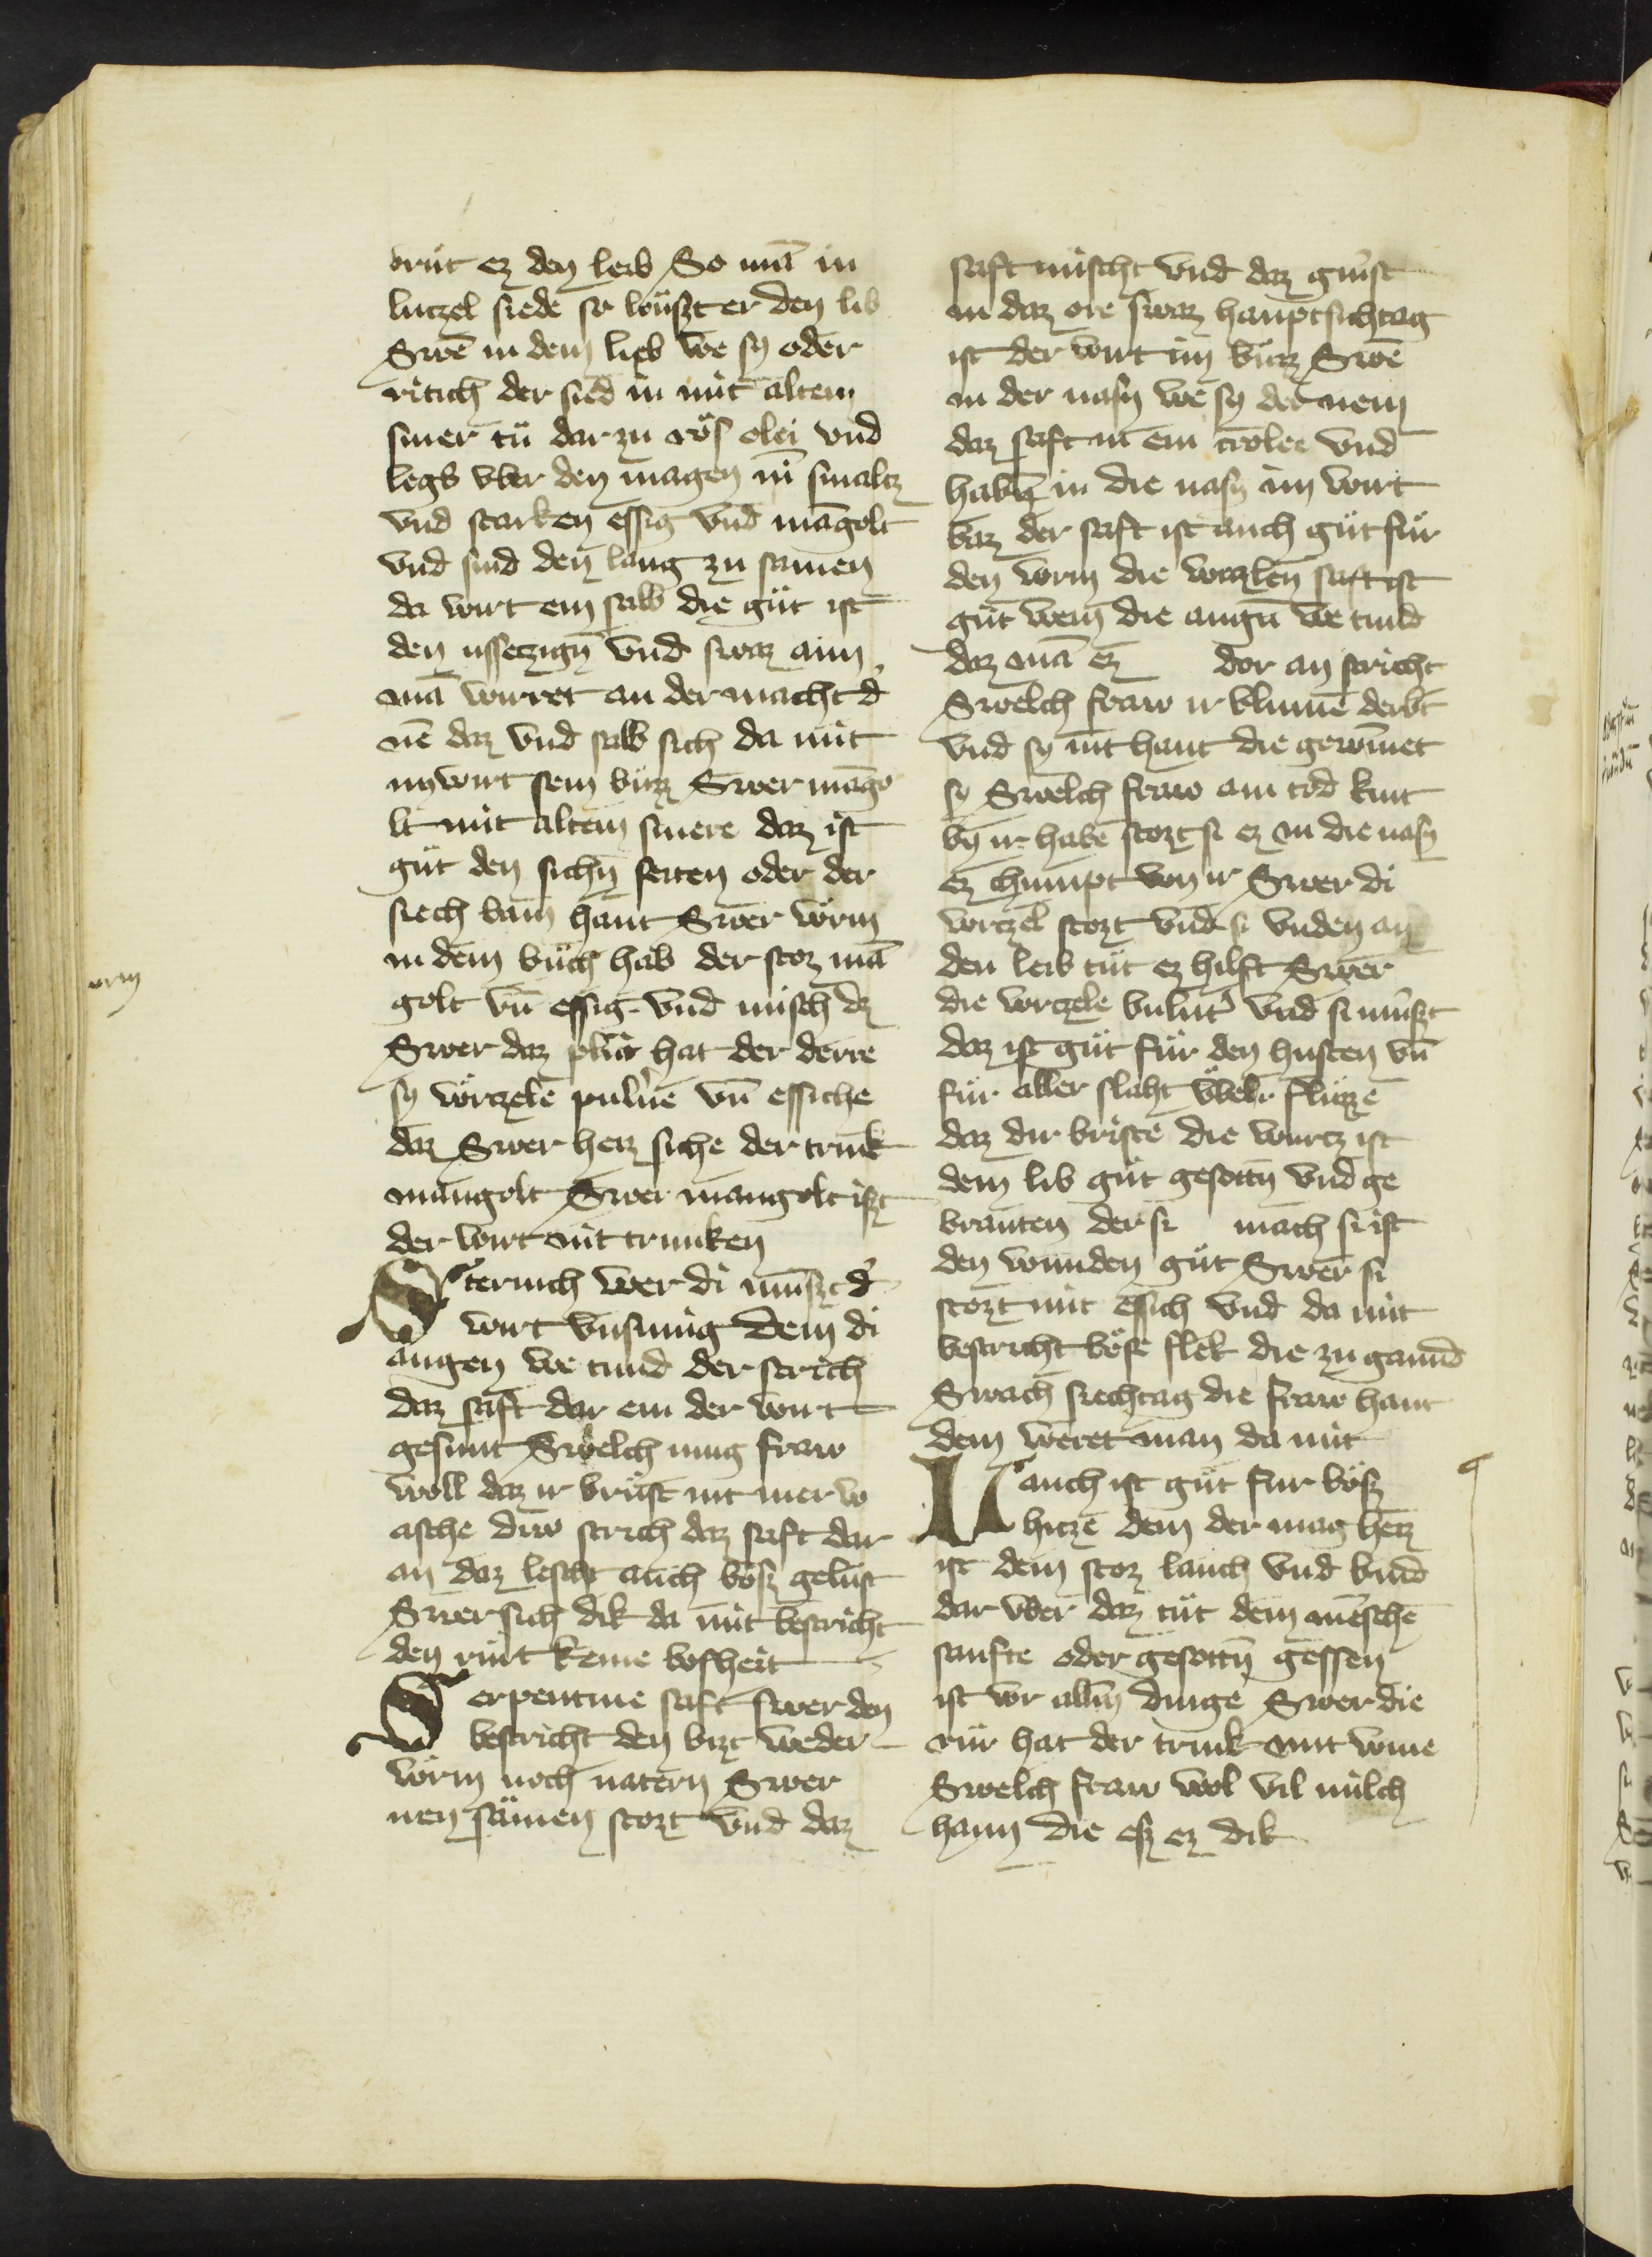 vrüt ez den leib So mā in
lutzel siede so lüszt er den lib
Swē in dem lieb we sy oder
ritich der sied in mit altem
smer tü dar zu rös olei vnd
legs vber den magen in smaltz
vnd starken essig vnd māgolt
vnd sind den lang zu samen
da wirt ein salb die güt ist
den ussetzign vnd swaz aim
mā wirret an der macht d'
nē daz vnd salb sich da mit
im wirt sein bütz Swer mago
lt mit altem smere daz ist
güt den sichn seiten oder der
siech bain hant Swer würm
in dem buch hab der stoz mā
golt vn essig vnd misch dz
Swer daz plüt hat der derre
sy wurtzele puluē vn essiche
daz Swer herz siche der trink
mangolt Swer mangolt iszt
der wirt nit trunken
Sternich wer di nuszt d'
wirt vnsinnig Dem di
augen we tund der strich
daz saft dar ein der wirt
gesunt Swelch iung fraw
woll daz ir brüst nit mer w
asche diw strich daz saft dar
an daz lescht auch bösz gelust
Swer sich dik da mit bestricht
den rürt keine bosheit
Serpentine saft swer den
bestricht den bizt weder
würm noch natern Swer
nen samen stozt vnd daz
saft mischt vnd daz guist
in daz ore swaz hauptsichtag
ist der wirt im bütz Swē
in der nasn we sy der nem
daz saft in ein trolee vnd
habn in die nasn im wirt
baz der saft ist auch güt für
den wrm die wrtzlen saft ist
güt wem die augn we tund
daz mā ez dor an stricht
Swelch fraw ir blumē derbt
vnd sy nit hant die gewinnet
sy Swelch fraw ain tod kint
by ir habe stozt si ez in die nasn
ez chumpt von ir Swer di
wrtzel stozt vnd si vnden an
den leib tüt ez hilft Swer
die wrtzele puluet vnd si nuszt
daz ist güt für den husten vn
für aller slaht übelr flüzze
daz dir briste die wurtz ist
dem lib güt gesottn vnd ge
branten der si mach si ist
den wunden güt Swer si
stozt mit essich vnd da mit
bestricht böse flek die zu gand
Swach siechtag die fraw hant
dem weret man da mit
Lauch ist güt fur bösz
hitze dem der mag herz
ist dem stoz lauch vnd bind
dar vber daz tüt dem mēsche
sanfte oder gesottn gessen
ist vor allen dinge Swer die
rür hat der trink mit wine
Swelch fraw wol vil milch
hann die esz ez dik
wrm